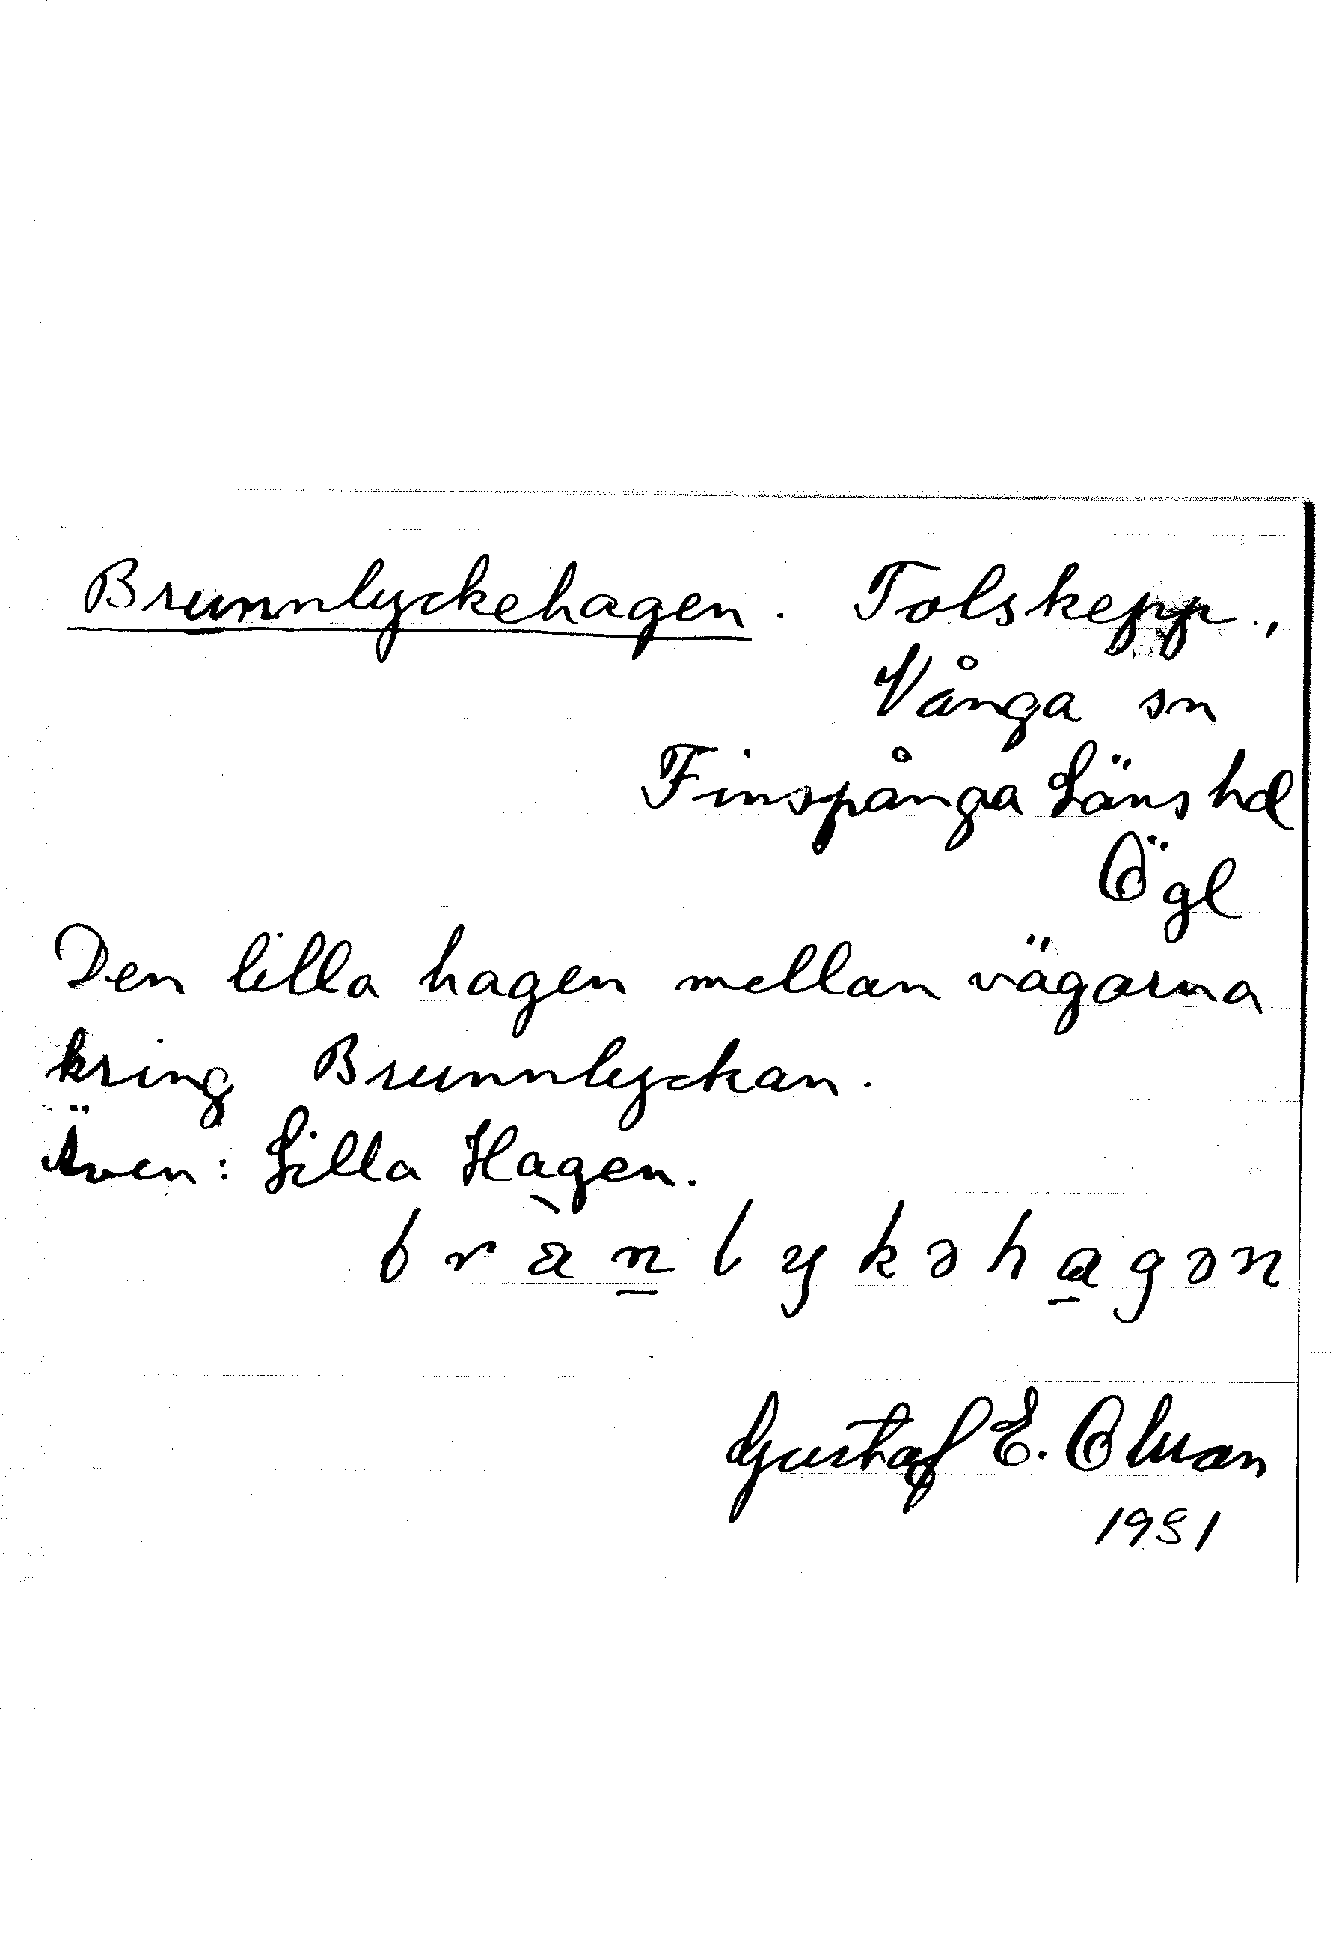 Brunnlyckehagen. Tolskepp.,
Vånga sn
Finspånga Läns hd
Ögl
Den lilla hagen mellan vägarna
kring Brunnlyckan.
Även: Lilla Hagen.
Gustaf E.